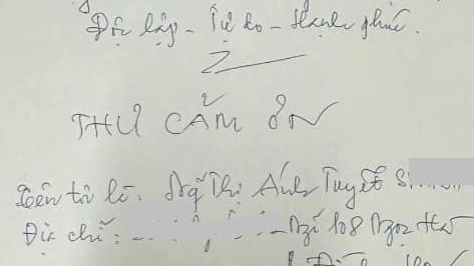 Độc lập - Tự do - Hạnh phúc.
THƯ CẢM ƠN
Tên tôi là. Ngũ Thị Ánh Tuyết
Địa chỉ: Ngõ 108 Ngọc Hà